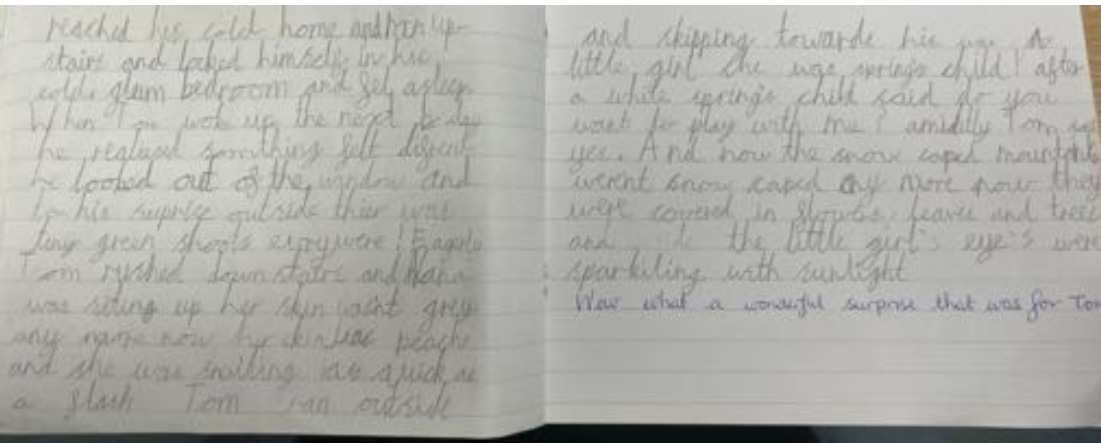 reached his cold home and ran up-
stairs and locked himself in his
cold glum bedroom and fel asleep
When Tom woke up the next
he realized somthing felt
he looked out of the window and
to his suprise outside thier was
tiny green shoots
Tom rushed down stairs and
was siting up her skin wasnt grey
any more now her skin was peache
and she was smiling as quick as
a flash Tom ran outside
and skipping towards his A
little girl she was springs child! after
a while springs child said do you
want to play with me?
yes. And now the snow caped
werent snow caped any more now they
were covered in leaves and trees
and the little girl's eye's were
sparkiling with sunlight
Wow what a wonderful surprise that was for Tom